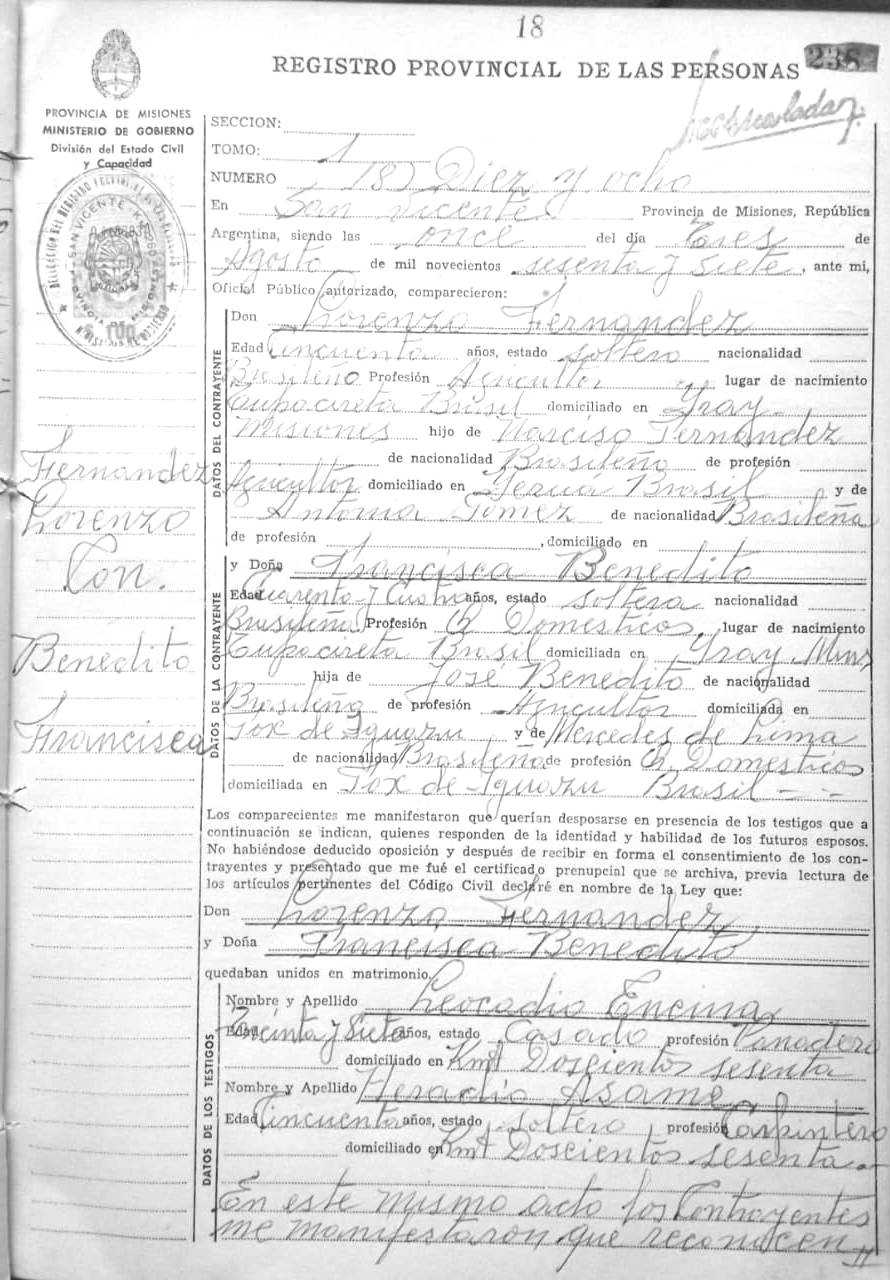 18
238
REGISTRO PROVINCIAL DE LAS PERSONAS
PROVINCIA DE MISIONES
MINISTERIO DE GOBIERNO
División del Estado Civil
y Capacidad
SAN VICENTE
SECCION:
TOMO: 1
NUMERO 18) Diez y ocho
En San Vicente Provincia de Misiones, República
Argentina, siendo las once del día tres de
Agosto de mil novecientos sesenta y siete, ante mi,
Oficial Público autorizado, comparecieron:
DATOS DEL CONTRAYENTE
Don Lorenzo Fernandez
Edad Cincuenta años, estado soltero nacionalidad
Brasileño Profesión Agricultor lugar de nacimiento
Tupacireta Brasil domiciliado en Yray
Misiones hijo de Narciso Fernandez
de nacionalidad Brasileño de profesión
Agricultor domiciliado en Yeruá Brasil y de
Antonia Gomez de nacionalidad Brasileña
de profesión , domiciliado en
Fernandez
Lorenzo
Con.
Benedito
Francisca
DATOS DE LA CONTRAYENTE
y Doña Francisca Benedito
Edad Cuarenta y Cuatro años, estado soltera nacionalidad
Brasileña Profesión Q. Domesticos, lugar de nacimiento
Tupacireta Brasil domiciliado en Yray Mnes
hija de José Benedito de nacionalidad
Brasileña de profesión Agricultor domiciliada en
Fox de Iguazu y de Mercedes de Lima
de nacionalidad Brasileña de profesión Q. Domesticos
domiciliada en Fox de Iguazu Brasil - - -
Los comparecientes me manifestaron que querían desposarse en presencia de los testigos que a
continuación se indican, quienes responden de la identidad y habilidad de los futuros esposos.
No habiéndose deducido oposición y después de recibir en forma el consentimiento de los con-
trayentes y presentado que me fué el certificado prenupcial que se archiva, previa lectura de
los artículos pertinentes del Código Civil declaré en nombre de la Ley que:
Don Lorenzo Fernandez
y Doña Francisca Benedito
quedaban unidos en matrimonio.
DATOS DE LOS TESTIGOS
Nombre y Apellido Leocadio Encina
Edad Treinta y Siete años, estado Casado profesión Panadero
domiciliado en Kmt Doscientos sesenta
Nombre y Apellido Heradio Asame
Edad Cincuenta años, estado soltero profesión Carpintero
domiciliado en Kmt Doscientos sesenta.-
En este mismo acto los Contrayentes
me manifestaron que reconocen //